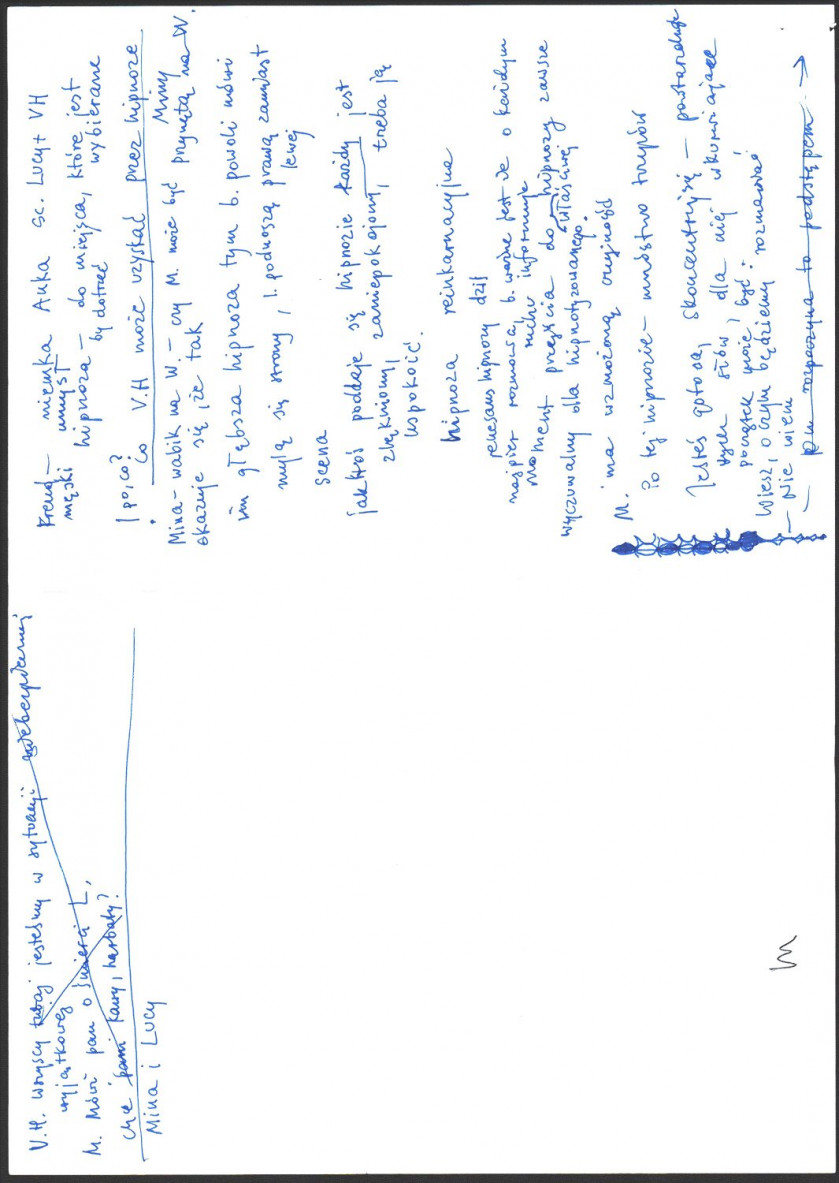 V.H. wszyscy tutaj jesteśmy w sytuacji niebezpiecznej
wyjątkowej
M. Mówi pan o śmierci L,
chce pani kawy, herbaty?
Mina i Lucy
Freud — niemka Anka sc. Lucy + VH
męski umysł
hipnoza — do miejsca, które jest
by dotrzeć wybierane
| po, co?
• Co V.H może uzyskać przez hipnozę
Miny
Mina - wabik na W. — czy M. może być przynętą na W.
okazuje się, że tak
im głębsza hipnoza tym b. powoli mówi
mylą się strony, l. podnoszą prawą zamiast
lewej
Scena
jak ktoś poddaje się hipnozie każdy jest
zlękniony, zaniepokojony, trzeba ją
uspokoić.
hipnoza reinkarnacyjna
renesans hipnozy dziś
najpierw rozmowa, b. ważne jest że o każdym
ruchu informuje
Moment przejścia do hipnozy zawsze
właściwej
wyczuwalny dla hipnotyzowanego.
M. ma wzmożoną czujność
Po tej hipnozie — mnóstwo trupów
Jesteś gotowa, skoncentruj się — powtarzduje
tych słów, dla niej wkurwiające
początek może być:
Wiesz, o czym będziemy rozmawiać
— Nie wiem
— p.m rozpoczyna to podstępem →
M